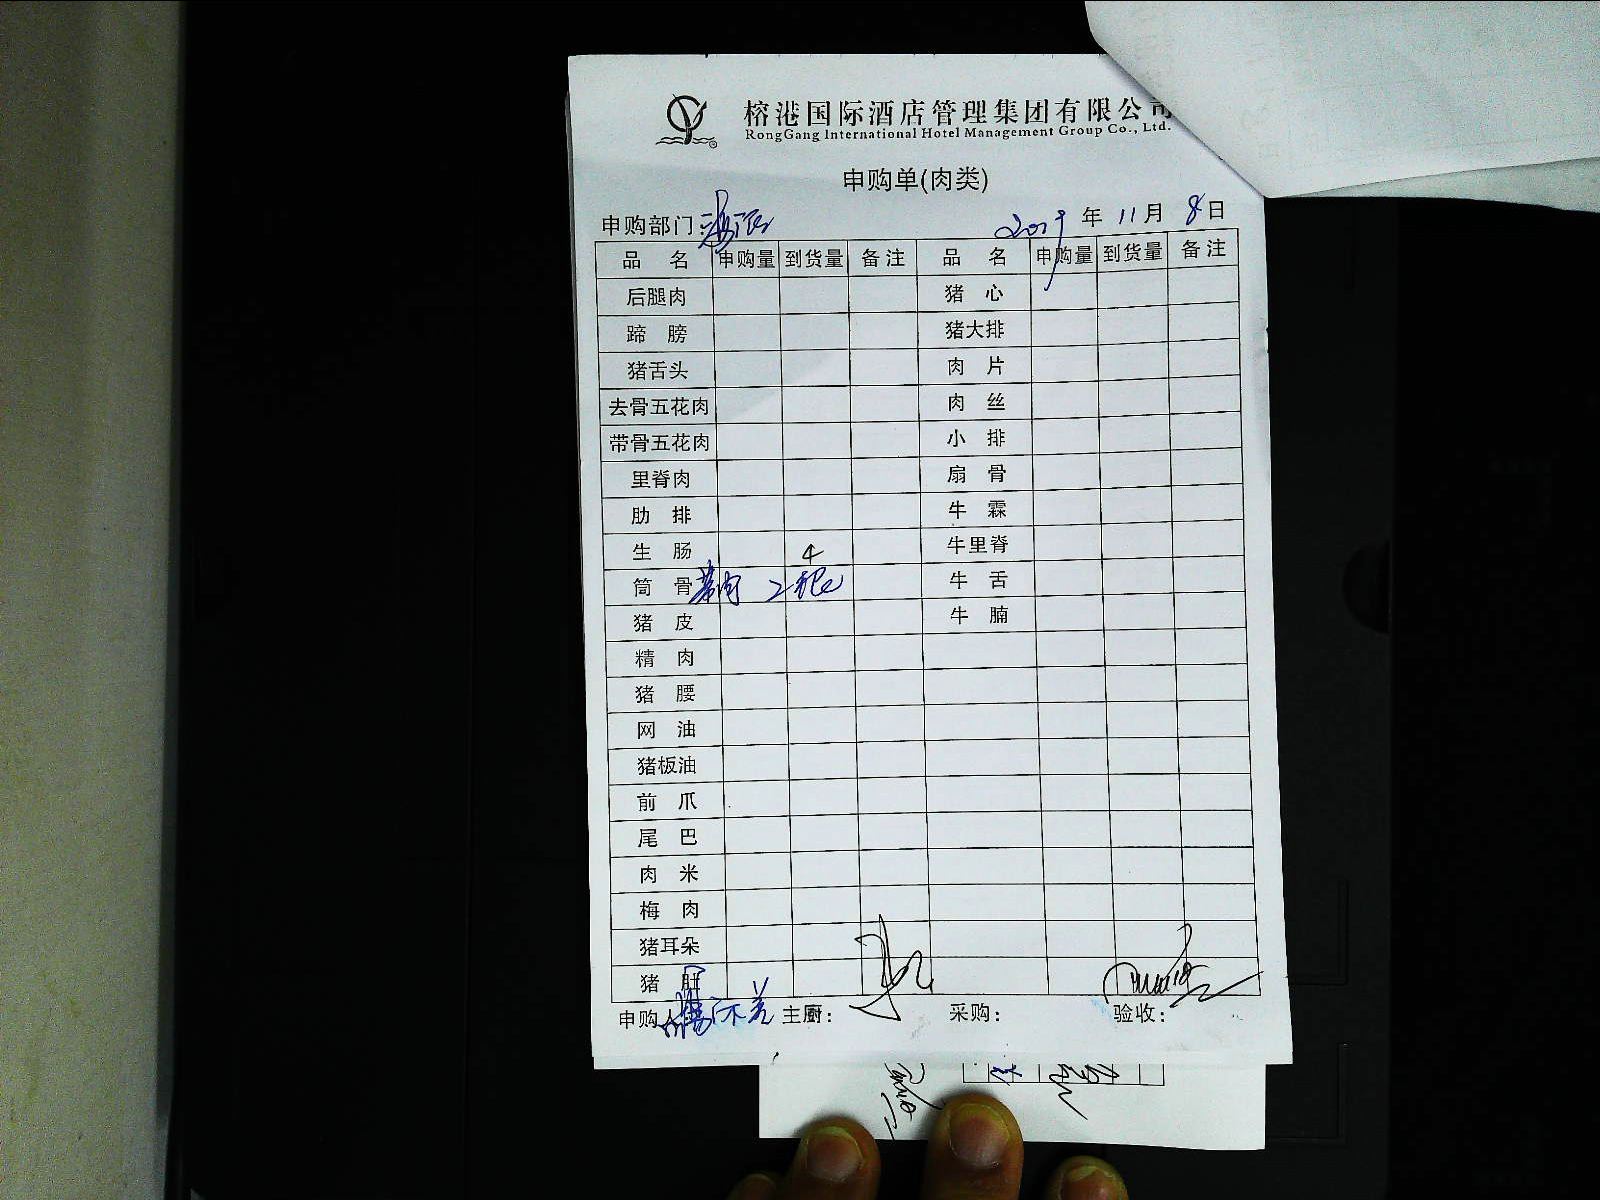 榕港国际酒店管理集团有限公司
RongGang International Hotel Management Group Co., Ltd.
申购单(肉类)
申购部门: 2019年11月8日
品名 申购量 到货量 备注 品名 申购量 到货量 备注
后腿肉 猪心
蹄膀 猪大排
猪舌头 肉片
去骨五花肉 肉丝
带骨五花肉 小排
里脊肉 扇骨
肋排 牛霖
生肠 4 牛里脊
筒骨 带肉 2 牛舌
猪皮 牛腩
精肉
猪腰
网油
猪板油
前爪
尾巴
肉米
梅肉
猪耳朵
猪肚
申购人: 主厨: 采购: 验收: